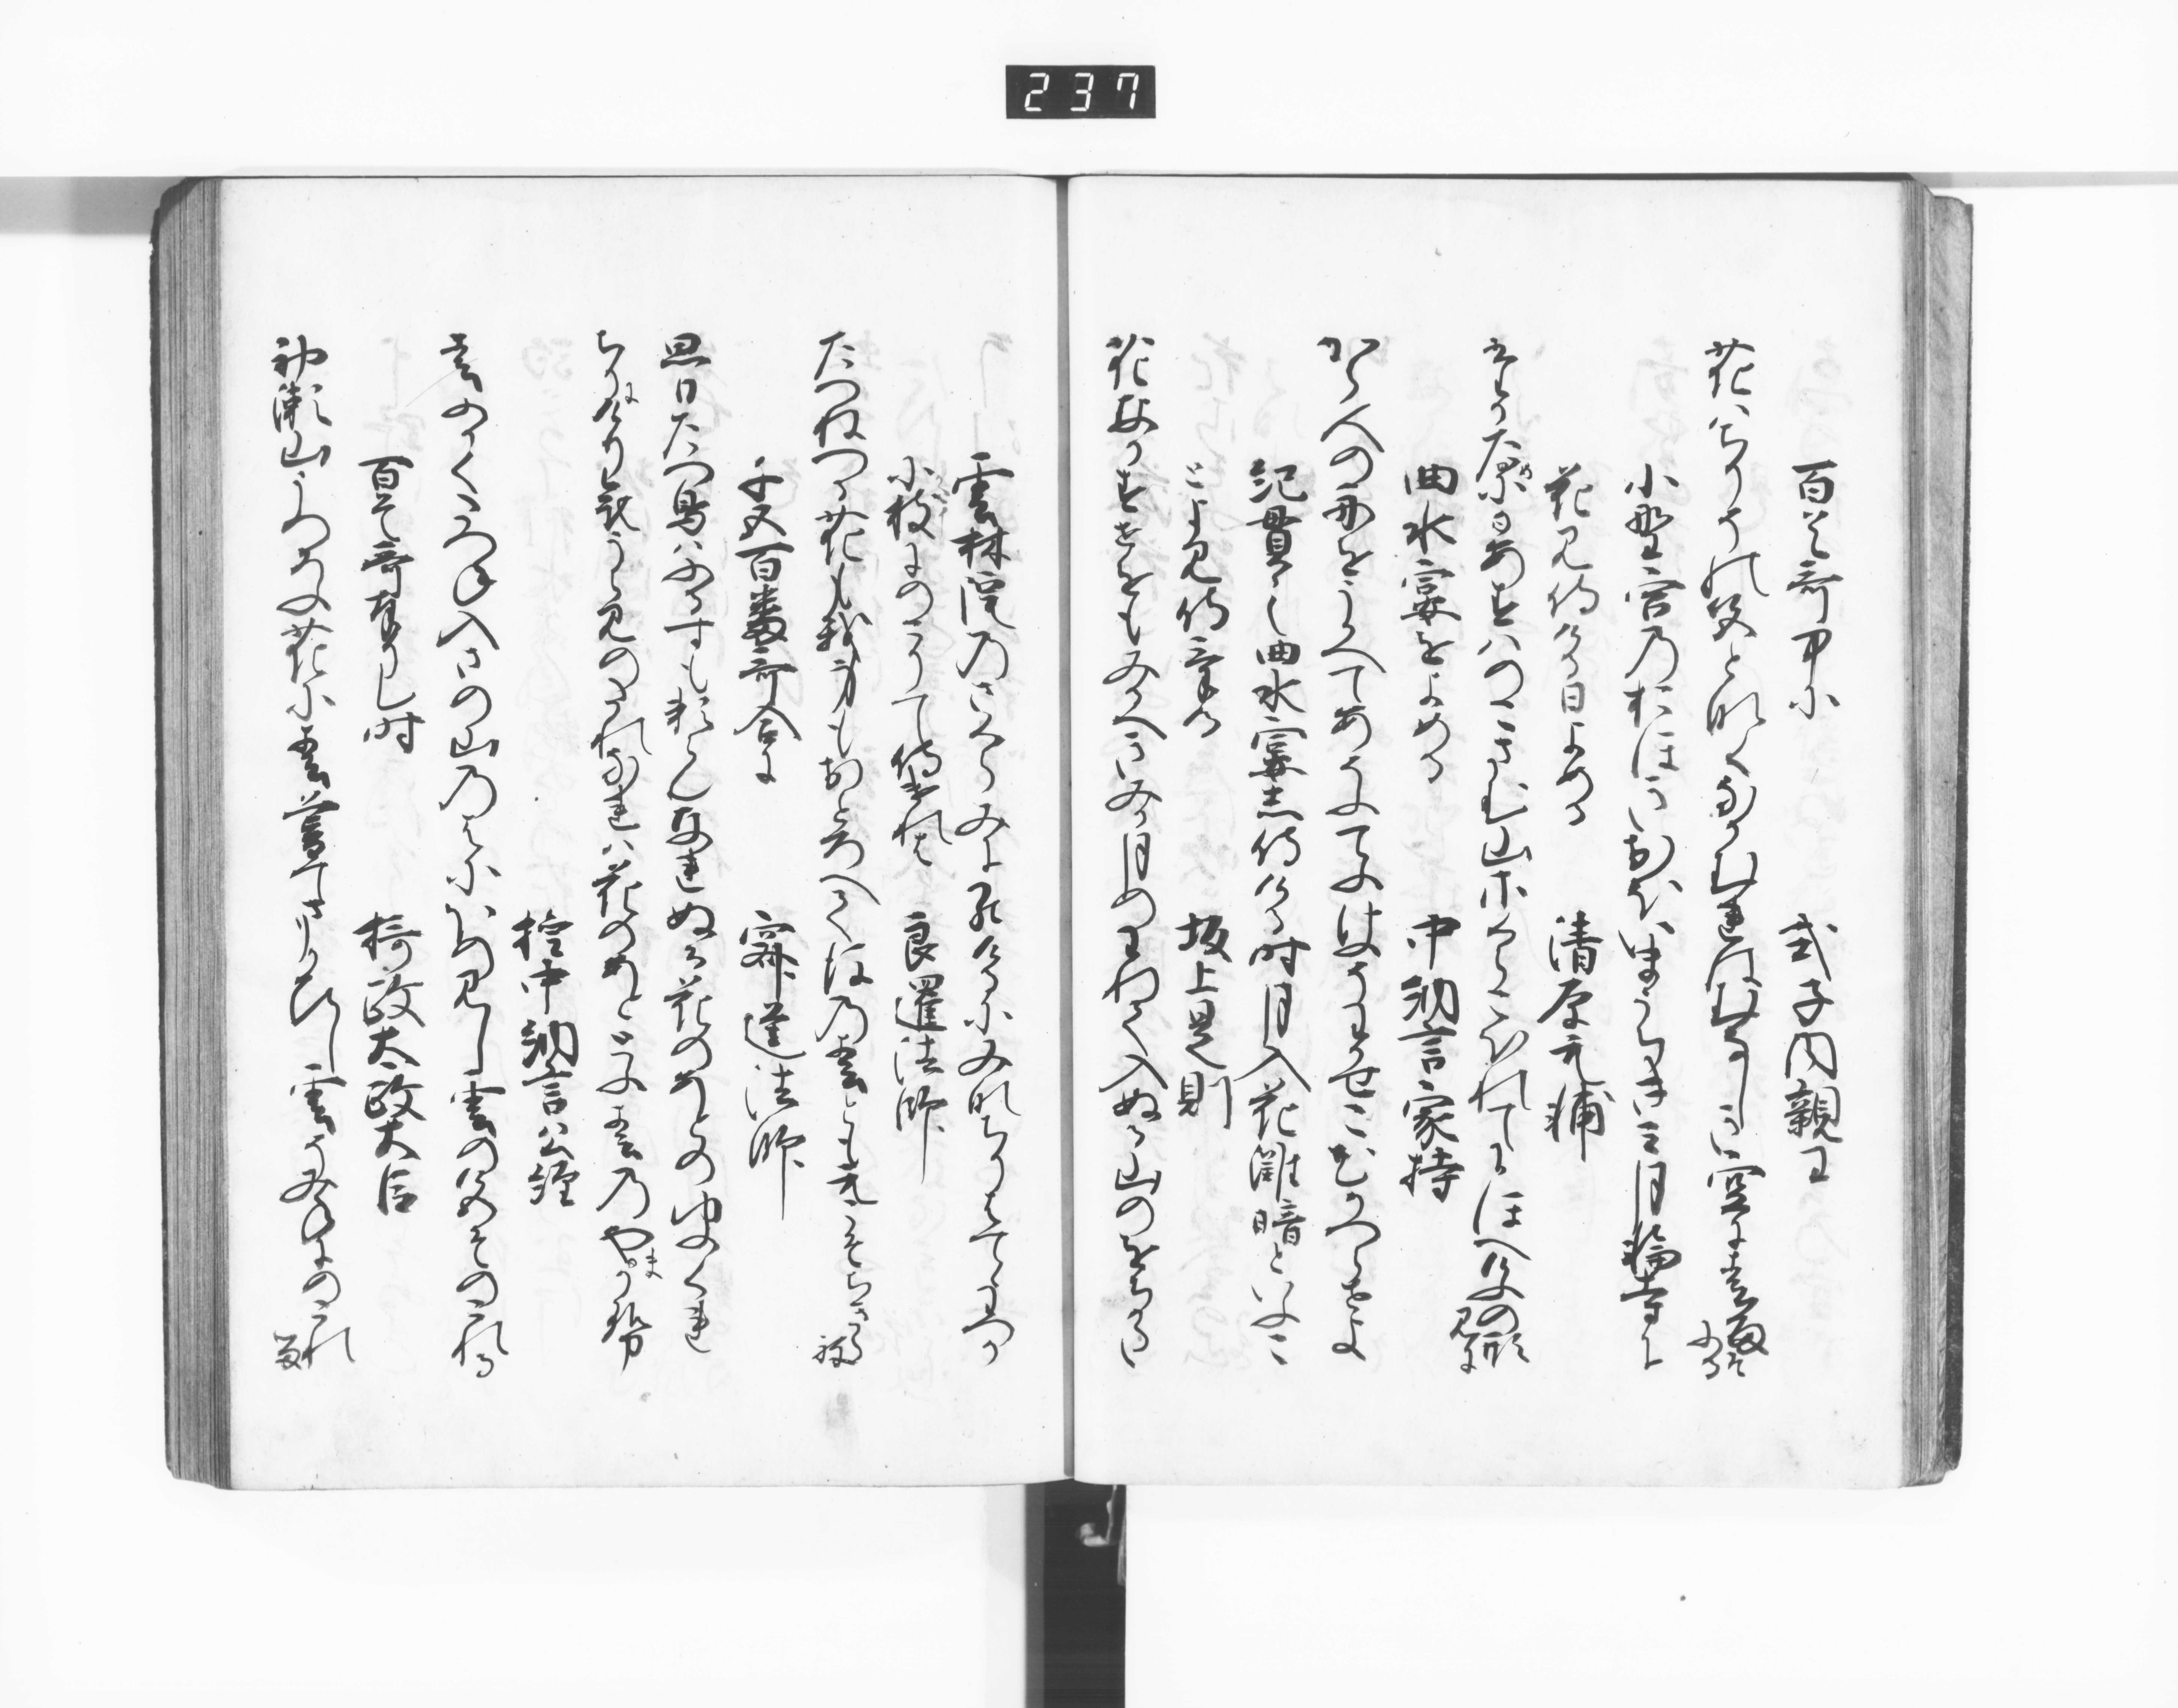 百首哥中に　式子内親王
花はちりその色となくなかむれはむなしき空に春雨そふる
小野宮のおほきおほいまうちきみ月輪寺に
花見侍ける日よめる　清原元輔
たか為にあすはのこさむ山さくらこほれてにほへけふの形見に
曲水宴をよめる　中納言家持
から人の舟をうかへてあそふてふけふそわかせこ花かつらせよ
紀貫之曲水宴し侍ける時月入花灘暗といふこ
とをよみ侍ける　坂上是則
花なかすせをもみるへきみか月のわれて入ぬる山のをちかた
雲林院のさくらみにまかりけるにみなちりはてゝわつか
に小枝にのこりて侍けれは　良暹法師
たつねつる花も我身もおとろへて後の春ともえこそちきらね
千五百番哥合に　寂蓮法師
思ひたつ鳥はふるすもたのむらんなれぬる花のあとの夕くれ
ちりにけり哀うらみのたれなれは花のあととふ春の山かせ
権中納言公経
春ふかくたつね入さの山のはにほの見し雲の色そのこれる
百首哥奉りし時　摂政太政大臣
初瀬山うつろふ花に春暮てまかひし雲そみねにのこれる
237